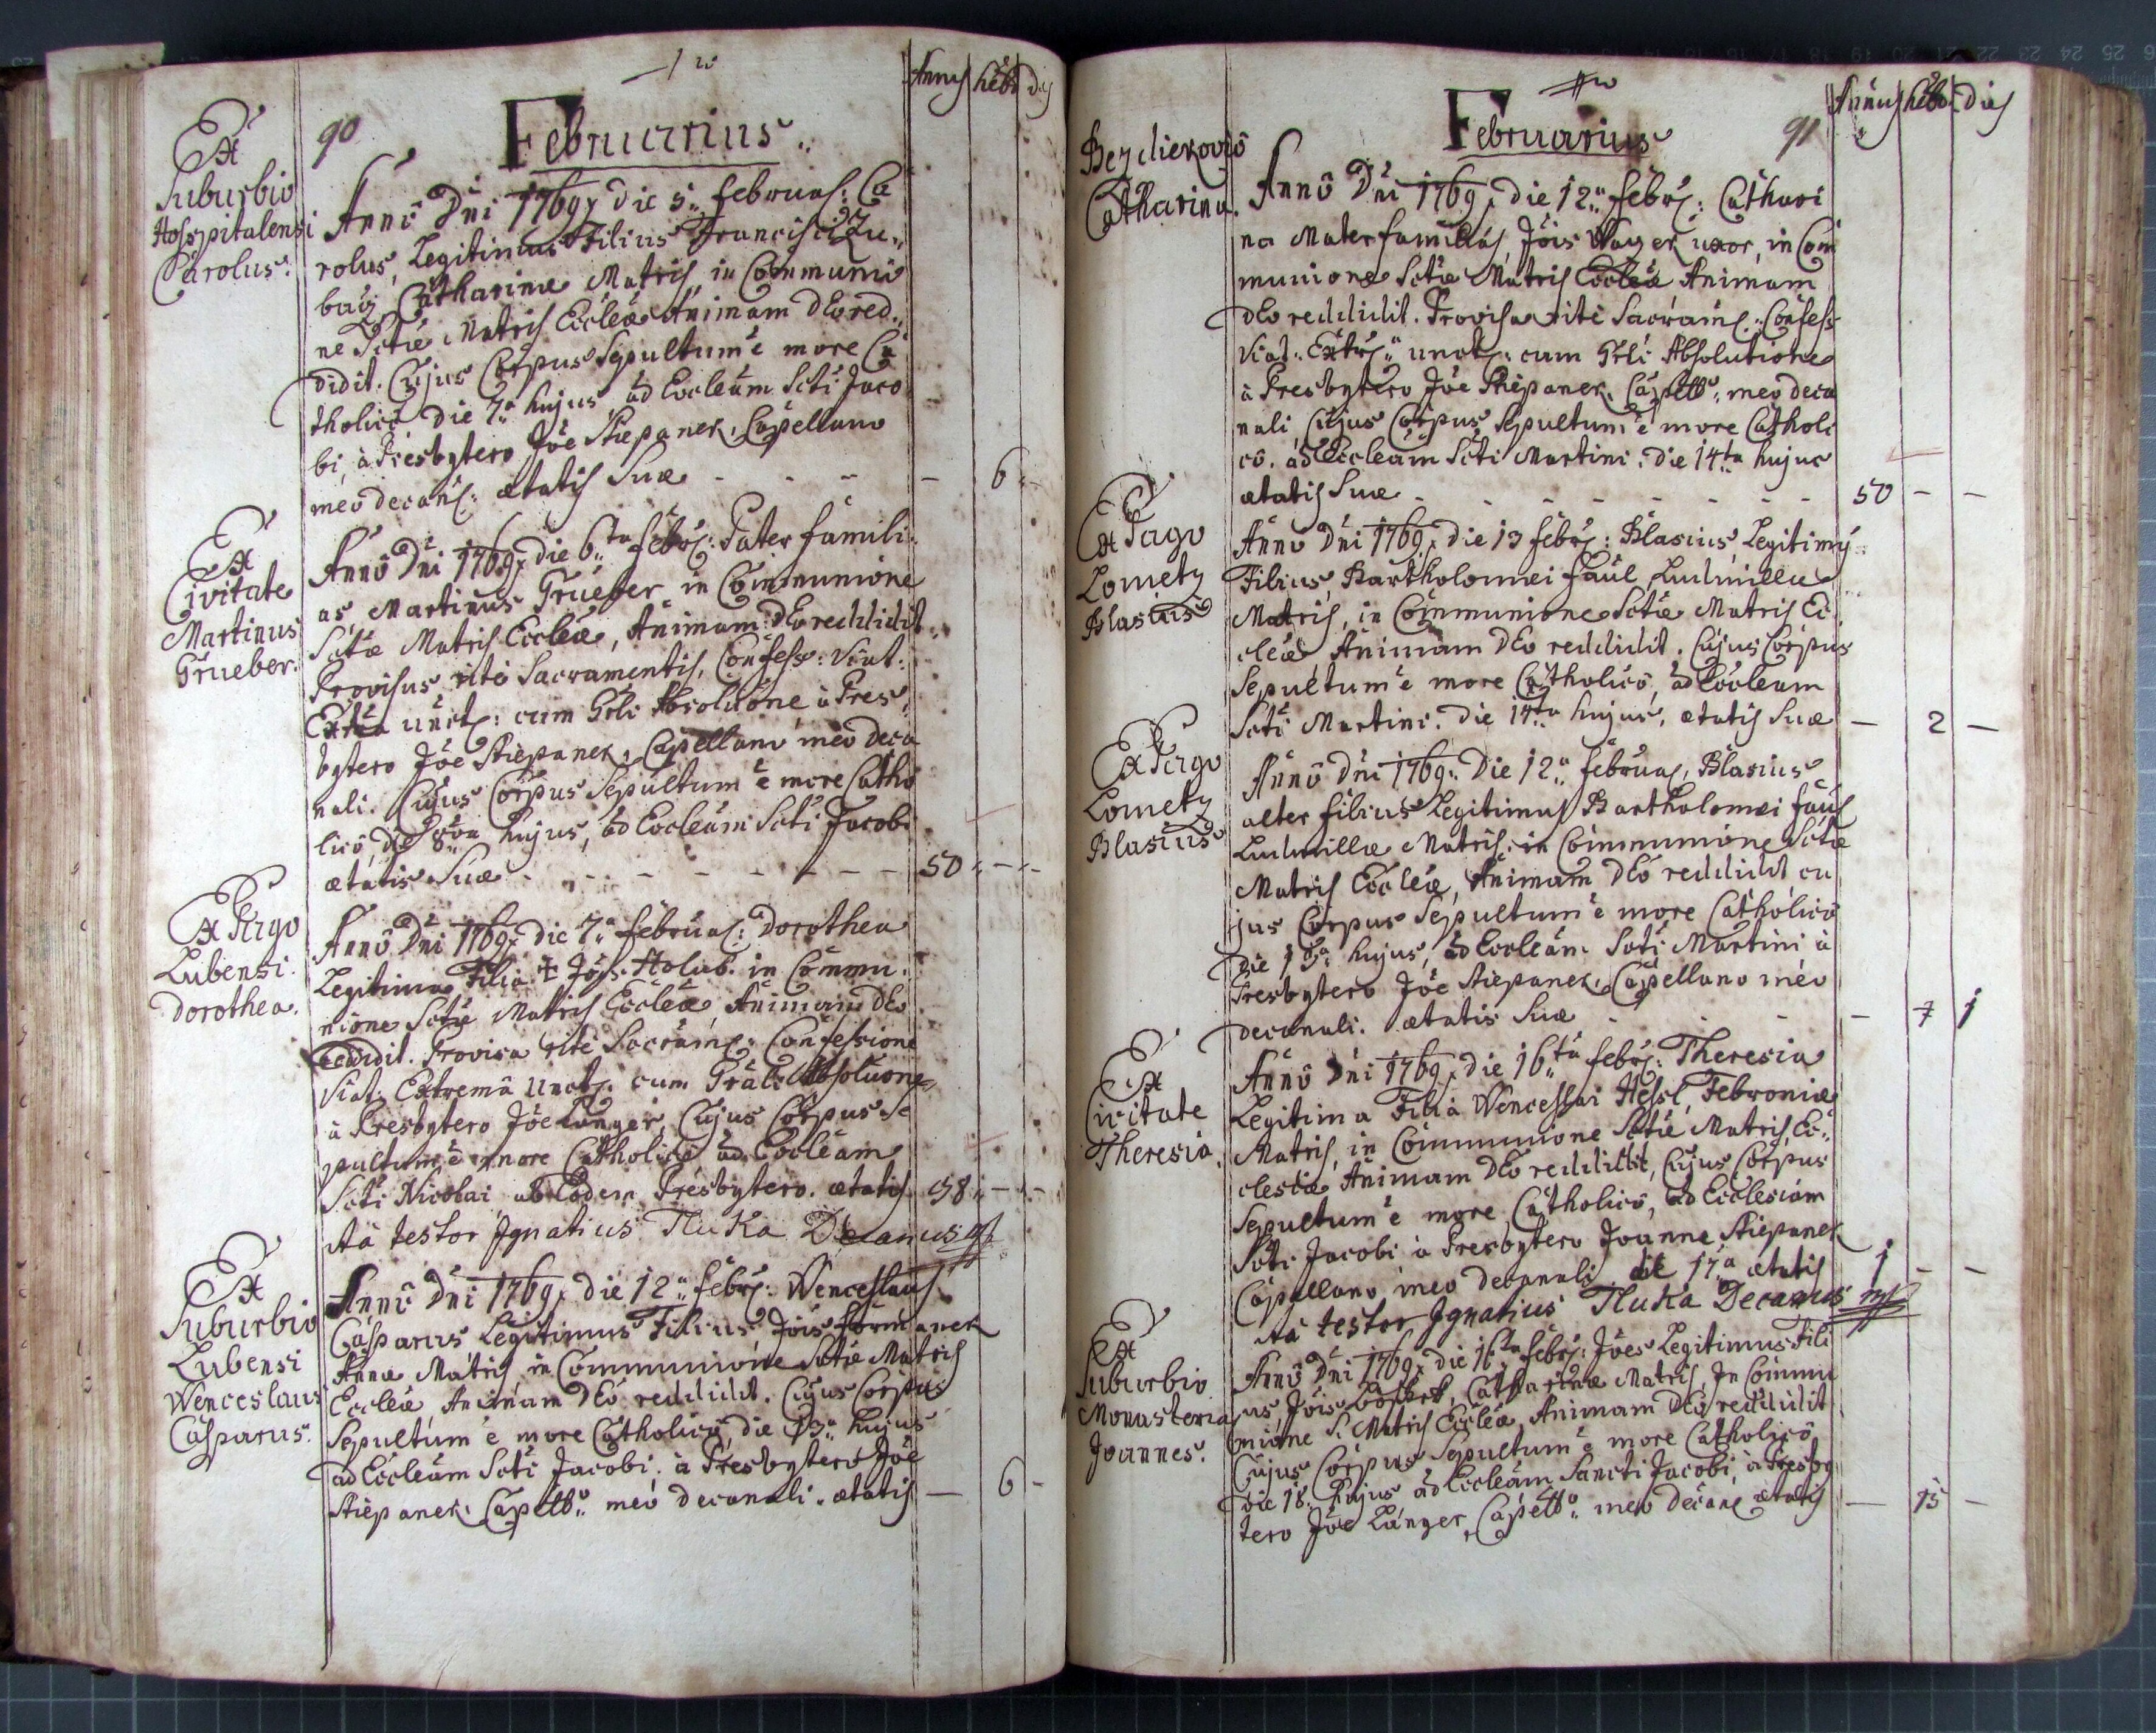 Annus hebd dies
90
Februarius
Ex
Suburbio
Hospitalensi
Carolus.
Anno Dni 1769 die 5. februar: Ca
rolus, Legitimus Filius Francisci
Catharinae Matris, in Communio
ne Sctae Matris Eccleae Animam DEo red
didit. Cujus Corpus Sepultum e more Ca
tholico die 7a hujus, ad Eccleam Scti Jaco
bi, à Presbytero Jõe Stiepanek, Capellano
meo decanal: aetatis Suae - - - - 6 -
Ex
Civitate
Martinus
Grueber.
Anno Dni 1769 die 6ta febr: Pater famili
as, Martinus Grueber in Communione
Sctae Matris Eccleae, Animam DEo reddidit
Provisus rite Sacramentis, Confess: Viat:
Extra unct: cum Grli Absoluone à Pres
bytero Jõe Stiepanek, Capellano meo deca
nali. Cujus Corpus Sepultum e more Catho
lico, die 8va hujus, ad Eccleam Scti Jacobi
aetatis Suae - - - - - - - 50 - -
Ex Pago
Lubensi
Dorothea.
Anno Dni 1769 die 7a februar: Dorothea
Legitima Filia + Jõis Holub. in Commu
nione Sctae Matris Eccleae Animam DEo
reddidit. Provisa rite Sacram: Confessione
Viat: Extrema Unct: cum Grali Absoluone
à Presbytero Jõe Langer, Cujus Corpus Se
pultum e more Catholico ad Eccleam
Scti Nicolai, ab Eodem Presbytero. aetatis 58 - -
Ita testor Ignatius Tluka Decanus mp
Ex
Suburbio
Lubensi
Wenceslaus
Casparus.
Anno Dni 1769 die 12a febr: Wenceslaus
Casparus Legitimus Filius Jõis Formanek
Annae Matris in Communione Sctae Matris
Eccleae, Animam DEo reddidit. Cujus Corpus
Sepultum e more Catholico, die 13a hujus
ad Eccleam Scti Jacobi. à Presbytero Jõe
Stiepanek, Capello meo decanali. aetatis - 6 -
Annus hebd. dies
91
Februarius
Bezdiekovio
Catharina.
Anno Dni 1769 die 12a febr: Cathari
na Mater familias, Jõis Wager uxor, in Com
munione Sctae Matris Eccleae Animam
DEo reddidit. Provisa rite Sacram: Confess
Viat: Extr: unct: cum Grli Absolutione
à Presbytero Jõe Stiepanek, Capello meo deca
nali, Cujus Corpus Sepultum e more Catholi
co. ad Eccleam Scti Martini. die 14ta hujus
aetatis Suae - - - - - - - 50 - -
Ex Pago
Lometz
Blasius
Anno Dni 1769 die 13 febr: Blasius, Legitimus
Filius, Bartholomei Faul, Ludmillae
Matris, in Communione Sctae Matris Ec
cleae Animam DEo reddidit. Cujus Corpus
Sepultum e more Catholico, ad Eccleam
Scti Martini. die 14ta hujus, aetatis Suae - 2 -
Ex Pago
Lometz
Blasius
Anno Dni 1769. Die 12a februar, Blasius
alter filius Legitimus Bartholomei Faul
Ludmillae Matris, in Communione Sctae
Matris Eccleae, Animam DEo reddidit cu
jus Corpus Sepultum e more Catholico
die 13a hujus, ad Eccleam Scti Martini à
Presbytero Jõe Stiepanek, Capellano meo
decanali. aetatis Suae - - - 7 1
Ex
Civitate
Theresia.
Anno Dni 1769 die 16ta febr: Theresia
Legitima Filia Wenceslai Hessl, Febroniae
Matris, in Communione Sctae Matris, Ec
clesiae Animam DEo reddidit, Cujus Corpus
Sepultum e more Catholico, ad Ecclesiam
Scti Jacobi à Presbytero Joanne Stiepanek
Capellano meo decanali. die 17a aetatis 1 - -
Ita testor Ignatius Tluka Decanus mp
Ex
Suburbio
Monasteria
Joannes.
Anno Dni 1769 die 16ta febr: Jões Legitimus Fili
us, Jõis Catharinae Matris, In Commu
nione S. Matris Eccleae, Animam DEo reddidit
Cujus Corpus Sepultum e more Catholico,
die 18. hujus ad Eccleam Sancti Jacobi, à Presby
tero Jõe Langer, Capello meo decana aetatis - 15 -